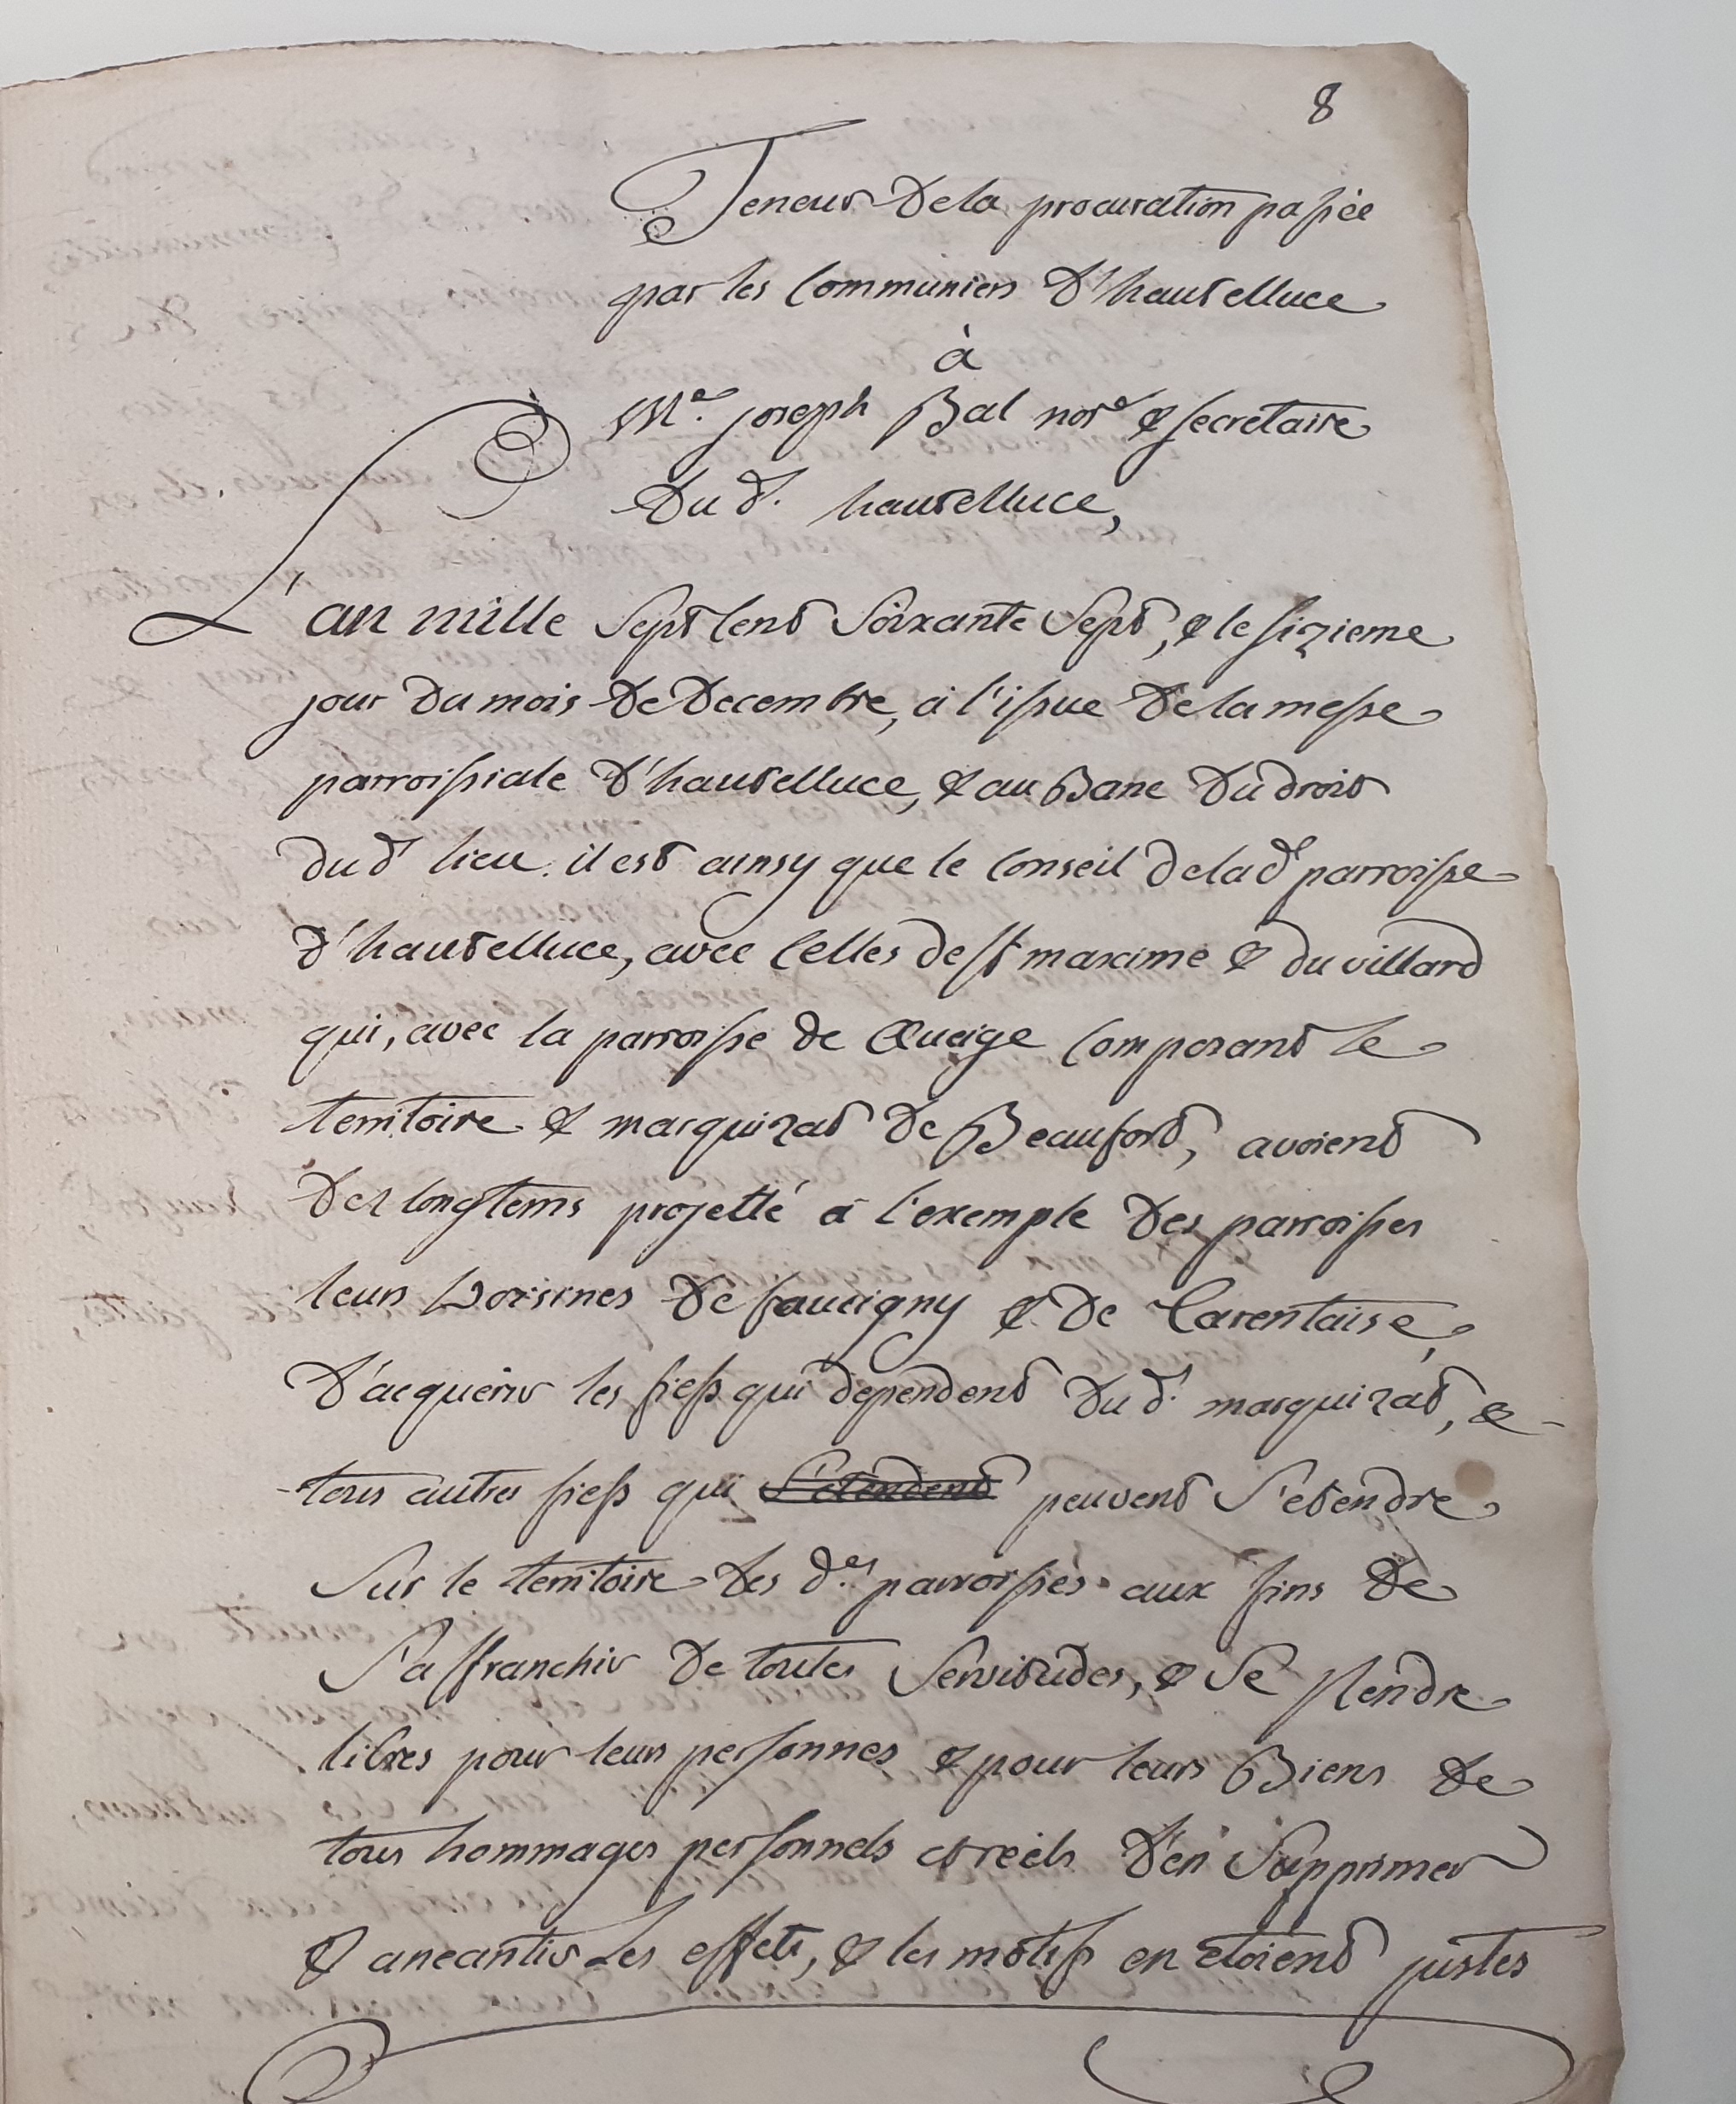 8
Teneur de la procuration passée
par les Communiers d'hauteluce
à
Me. joseph Bal nore & secretaire
du d. hautelluce,
L'an mille Sept Cent Soixante Sept, & le sizieme
jour du mois de Decembre, à l'issue de la messe
parroissiale d'hautelluce, & au Banc du droit
dud lieu. il est ainsy que le Conseil de lad parroisse
d'hautelluce, avec Celles de st maxime & du villard
qui, avec la parroisse de Queige Composant le
territoire & marquizat de Beaufort, avoient
dez longtems projetté à l'exemple des parroisses
leurs Voisines de faucigny & de Tarentaise,
d'acquerir les fiefs qui dependent du d. marquizat, &
tous autres fiefs qui S'etendent peuvent S'etendre
Sur le territoire des d.es parroisses aux fins de
S'affranchir de toutes Servitudes, & Se Rendre
libres pour leurs personnes & pour leurs Biens de
tous hommages personnels et reels d'en Supprimer
& aneantir Les effets, & les motifs en etoient justes